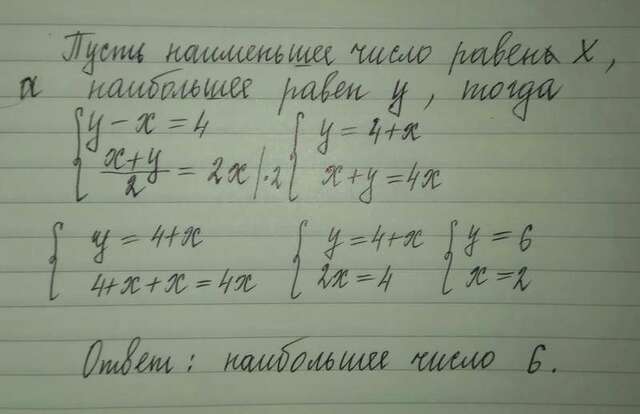 Пусть наименьшее число равень x,
а наибольшее равен y, тогда
{ y - x = 4 { y = 4 + x
{ (x+y)/2 = 2x |·2 { x + y = 4x
{ y = 4 + x { y = 4 + x { y = 6
{ 4 + x + x = 4x { 2x = 4 { x = 2
Ответ: наибольшее число 6.